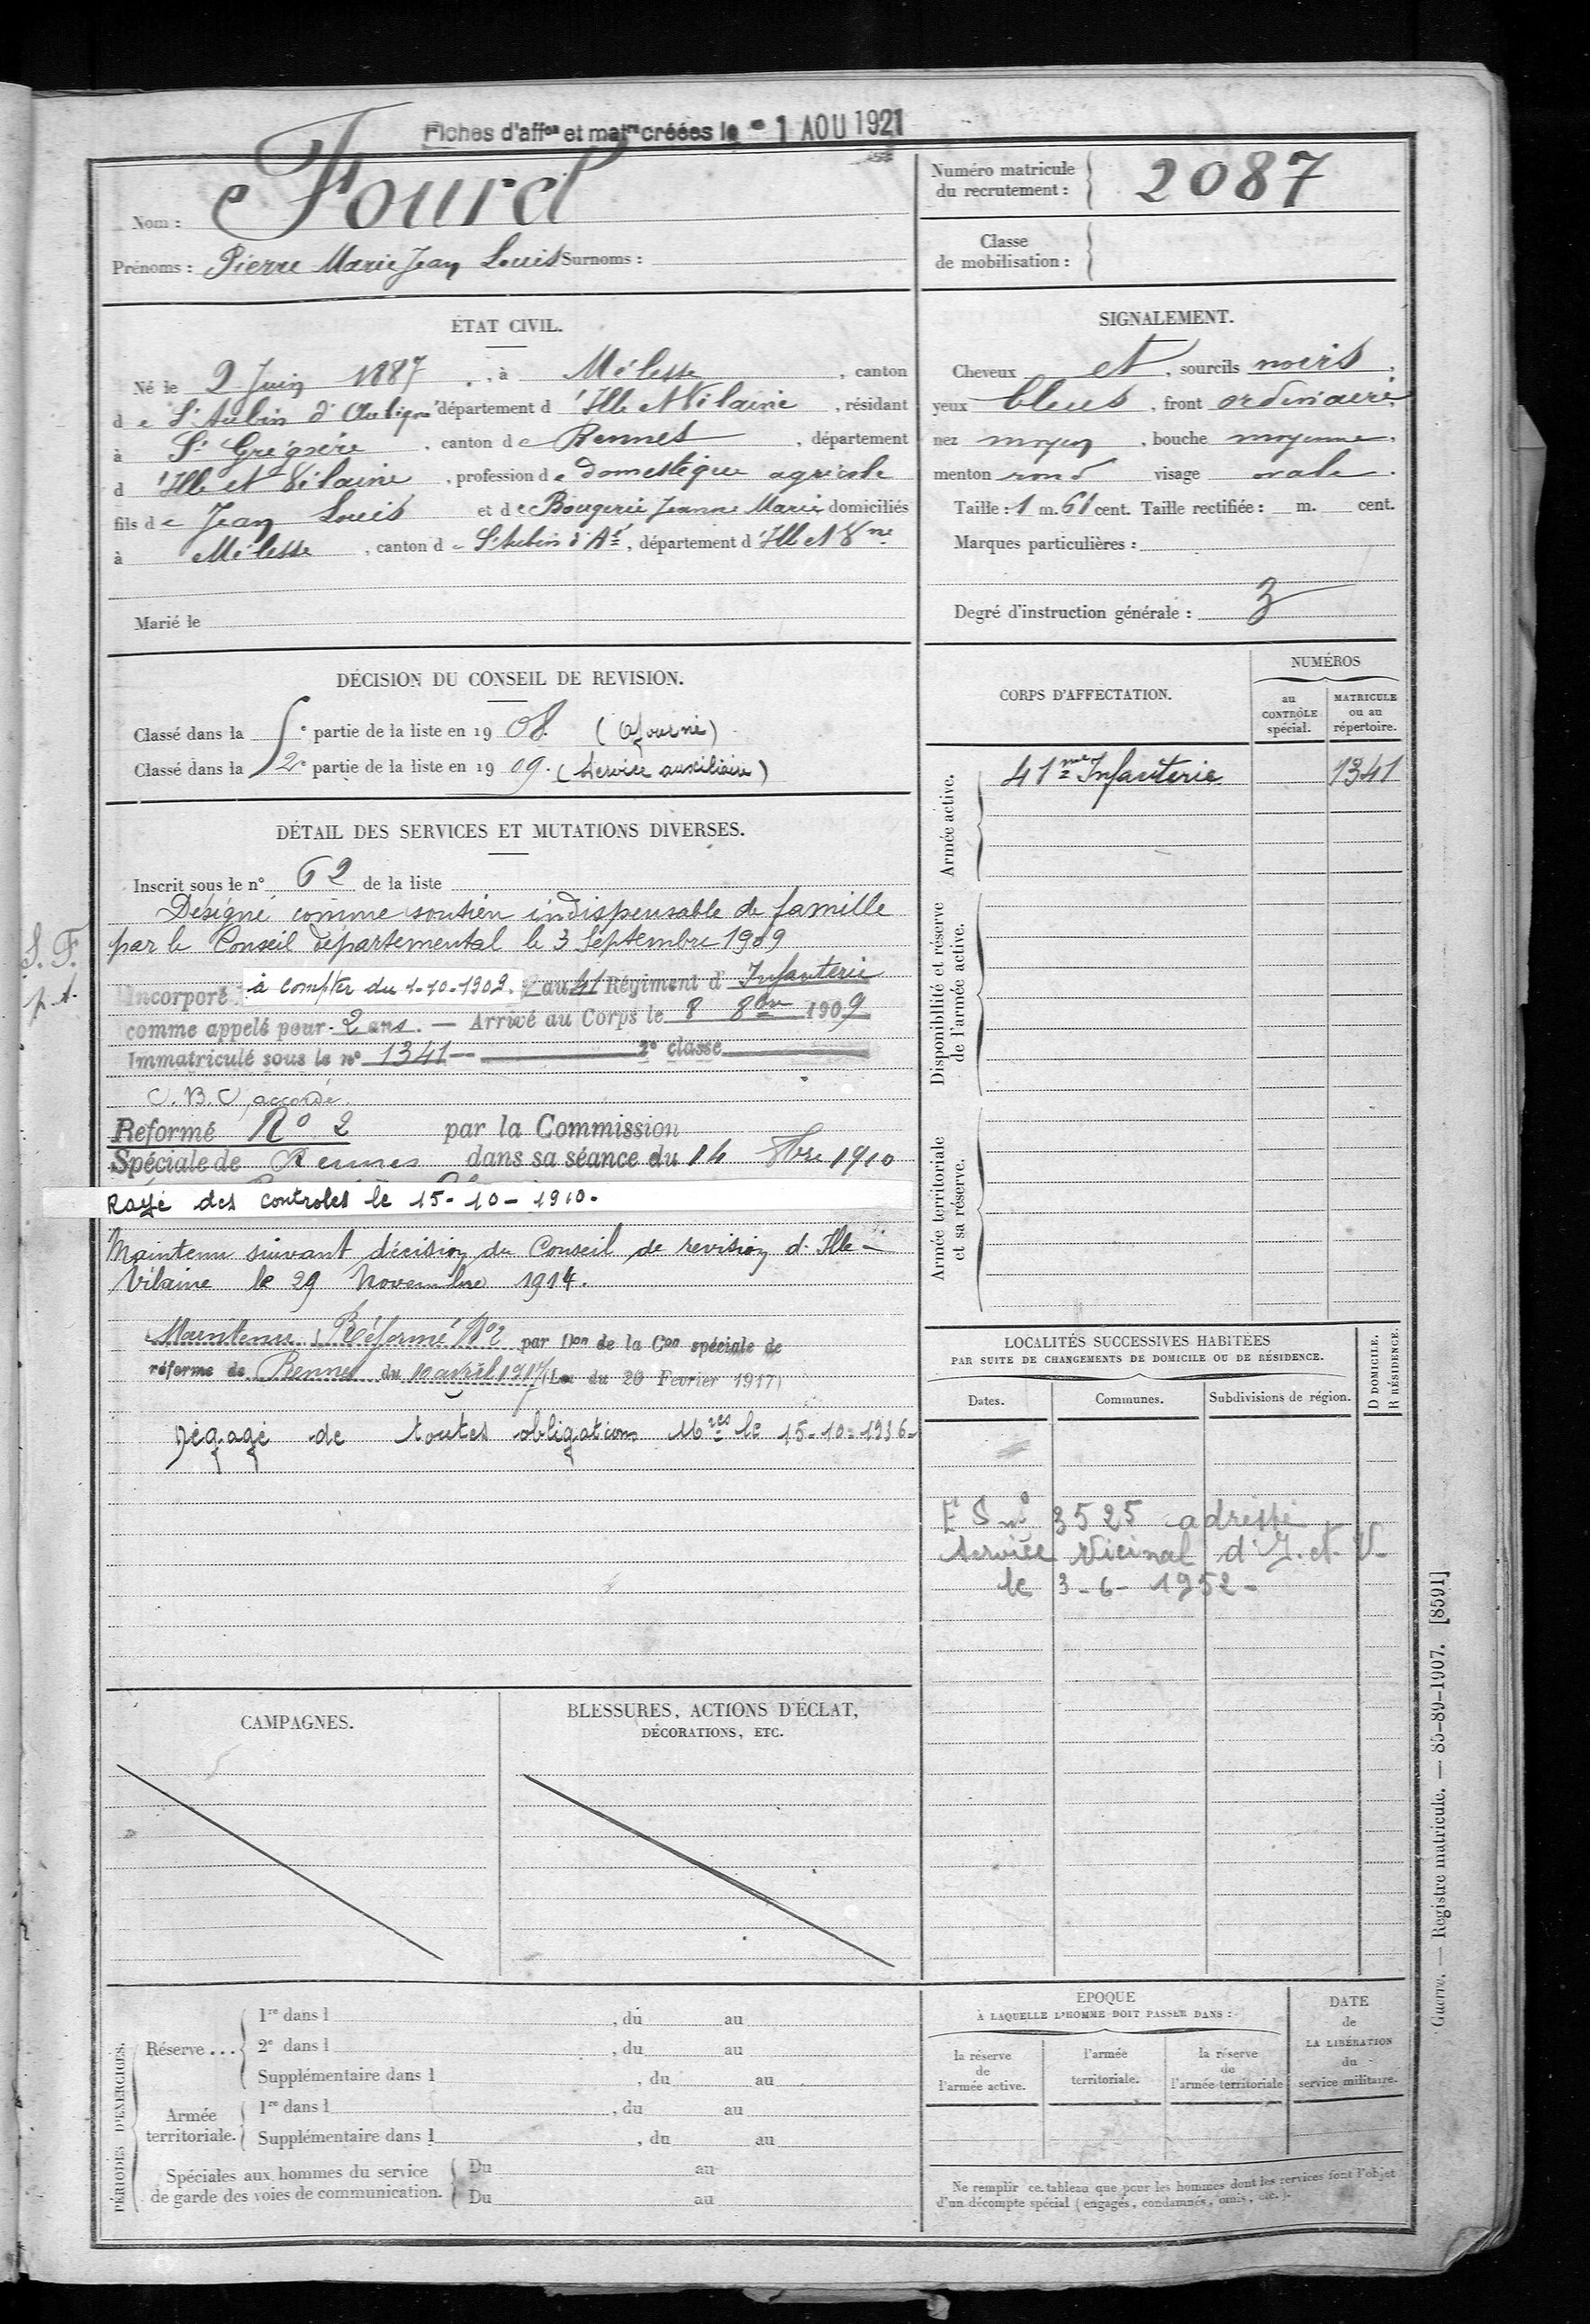 Fiches d'aff^on et mat^re créées le - 1 AOU 1921
Nom : Fourel
Prénoms : Pierre Marie Jean Louis Surnoms :
Numéro matricule du recrutement : 2087
Classe de mobilisation :
ÉTAT CIVIL.
Né le 2 Juin 1887, à Mélesse, canton
de St Aubin d'Aubigné département d'Ille et Vilaine, résidant
à St Grégoire, canton de Rennes, département
d'Ille et Vilaine, profession de domestique agricole
fils de Jean Louis et de Bougerie Jeanne Marie domiciliés
à Mélesse, canton de St Aubin d'Aé, département d'Ille et Vne
Marié le
SIGNALEMENT.
Cheveux et, sourcils noirs,
yeux bleus, front ordinaire,
nez moyen, bouche moyenne,
menton rond visage ovale.
Taille : 1 m. 61 cent. Taille rectifiée : m. cent.
Marques particulières :
Degré d'instruction générale : 3
DÉCISION DU CONSEIL DE REVISION.
Classé dans la e partie de la liste en 1908. (Ajourné)
Classé dans la 2e partie de la liste en 1909. (Service auxiliaire)
DÉTAIL DES SERVICES ET MUTATIONS DIVERSES.
Inscrit sous le n° 62 de la liste
Désigné comme soutien indispensable de famille
par le Conseil départemental le 3 Septembre 1909
S. F.
p. d.
Incorporé à compter du 1-10-1909. au 41 Régiment d'Infanterie
comme appelé pour 2 ans. — Arrivé au Corps le 8 8bre 1909
Immatriculé sous le n° 1341 — 2e classe
C. B. C accordé.
Reformé N° 2 par la Commission
Spéciale de Rennes dans sa séance du 14 8bre 1910
Rayé des controles le 15-10-1910.
Maintenu suivant décision du Conseil de revision d'Ille-
Vilaine le 29 Novembre 1914.
Maintenu Réformé N°2 par Don de la Con spéciale de
réforme de Rennes du 10 avril 1917 (Loi du 20 Fevrier 1917)
Dégagé de toutes obligations Mres le 15-10-1936-
CORPS D'AFFECTATION.
NUMÉROS
au CONTRÔLE spécial.
MATRICULE ou au répertoire.
Armée active.
41me Infanterie 1341
Disponibilité et réserve de l'armée active.
Armée territoriale et sa réserve.
LOCALITÉS SUCCESSIVES HABITÉES
PAR SUITE DE CHANGEMENTS DE DOMICILE OU DE RÉSIDENCE.
D DOMICILE. R RÉSIDENCE.
Dates. Communes. Subdivisions de région.
E S n° 3525 adressé
Service Vicinal d'I. et V-
le 3-6-1952-
CAMPAGNES.
BLESSURES, ACTIONS D'ÉCLAT,
DÉCORATIONS, ETC.
PÉRIODES D'EXERCICES.
Réserve...
1re dans l , du au
2e dans l , du au
Supplémentaire dans l , du au
Armée territoriale.
1re dans l , du au
Supplémentaire dans l , du au
Spéciales aux hommes du service de garde des voies de communication.
Du au
Du au
ÉPOQUE
À LAQUELLE L'HOMME DOIT PASSER DANS :
la réserve de l'armée active.
l'armée territoriale.
la réserve de l'armée territoriale
DATE de LA LIBÉRATION du service militaire.
Ne remplir ce tableau que pour les hommes dont les services font l'objet
d'un décompte spécial (engagés, condamnés, omis, etc.).
Guerre. — Registre matricule. — 85-89-1907. [8591]